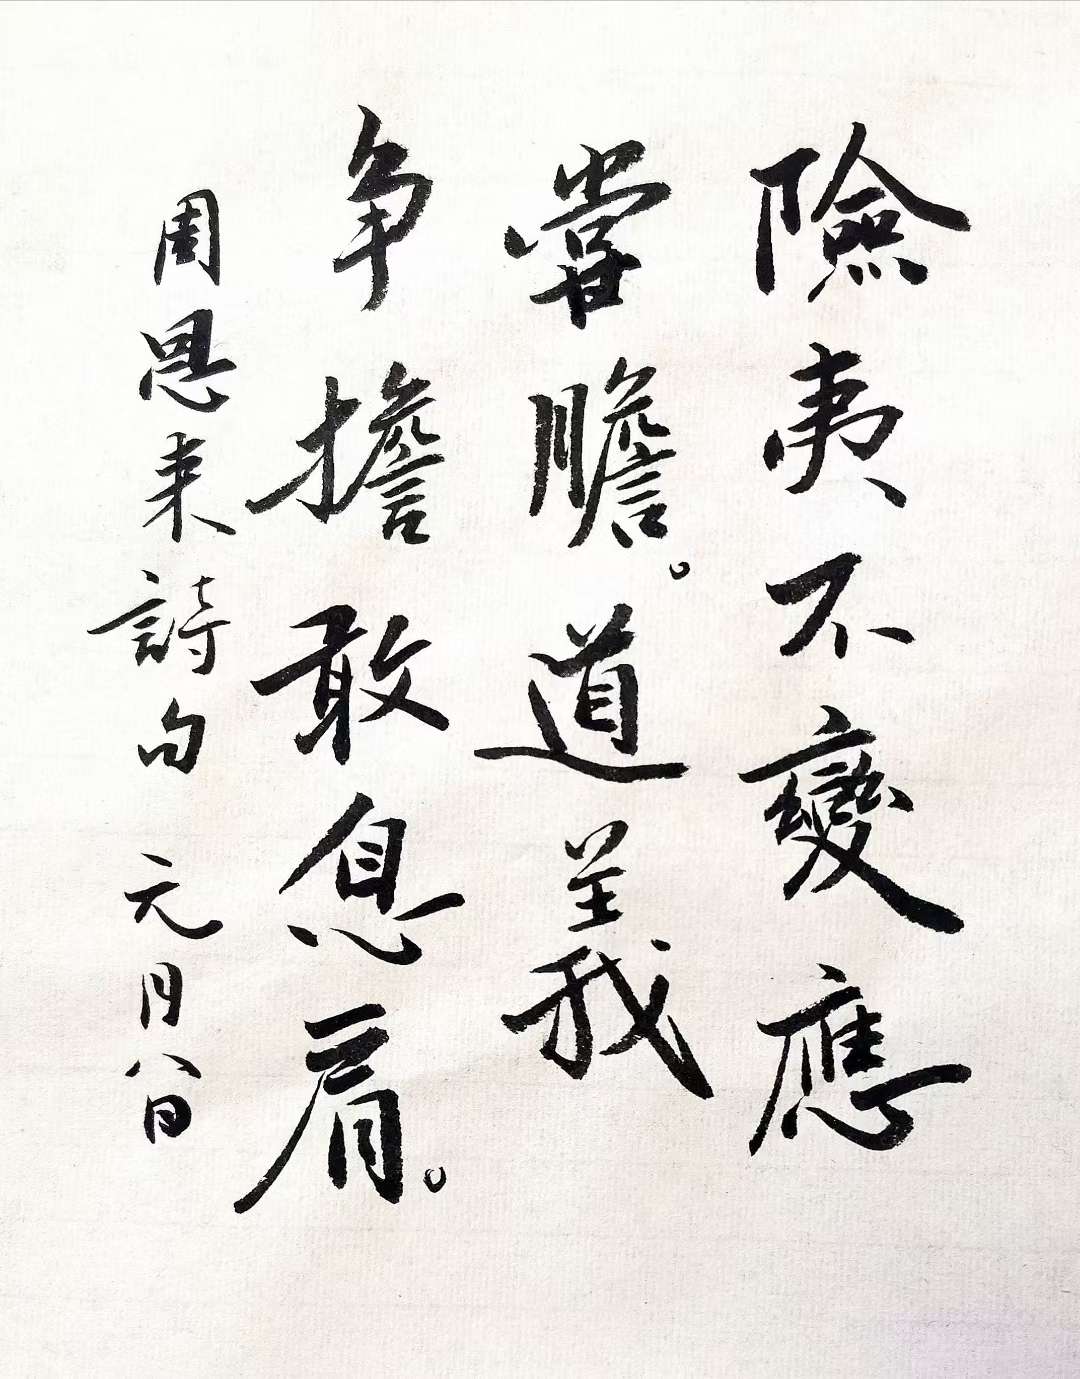 險夷不變應
嘗膽。道義
争擔敢息肩。
周恩来詩句 元月八日